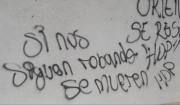 ORIEN
SE RES
Si nos
Siguan robando HDP
se mueren HDP